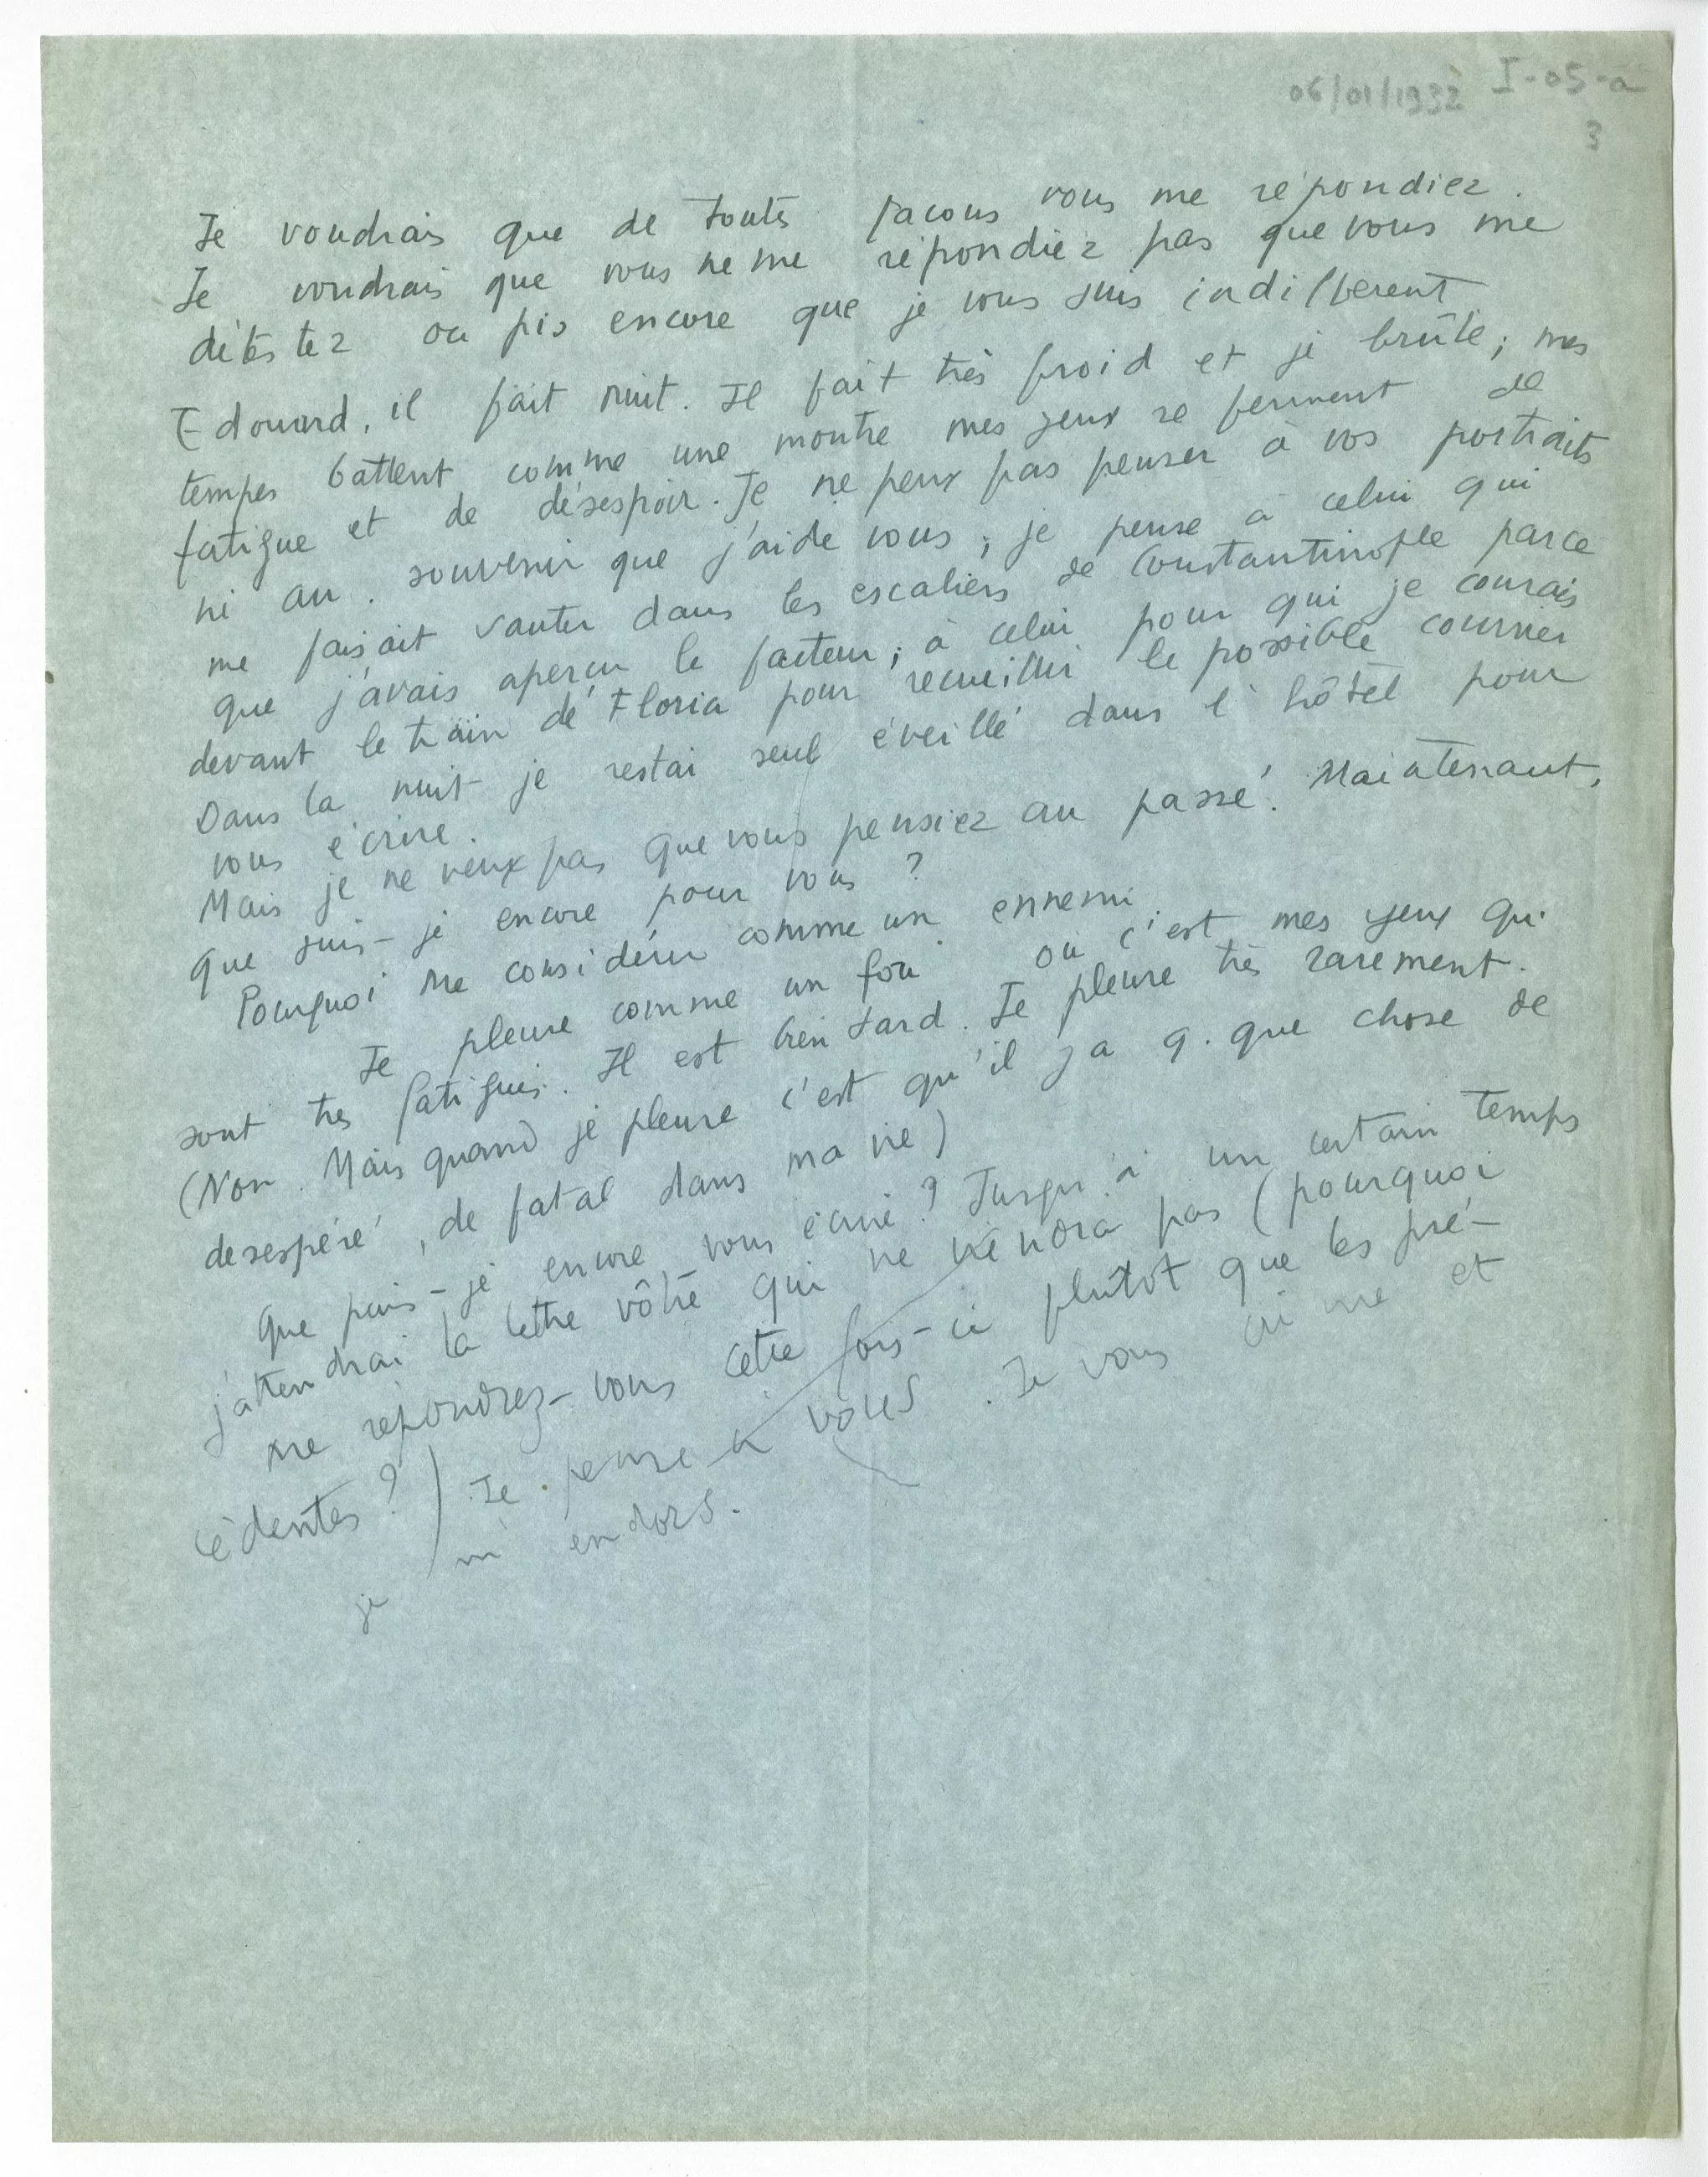 06/01/1932 I-05-a
3
Je voudrais que de toutes facons vous me répondiez.
Je voudrais que vous ne me répondiez pas que vous me
détestez ou pis encore que je vous suis indifferent
Edouard, il fait nuit. Il fait très froid et je brûle; mes
tempes battent comme une montre mes yeux se ferment de
fatigue et de désespoir. Je ne peux pas penser à vos portraits
ni au souvenir que j'ai de vous; je pense à celui qui
me faisait sauter dans les escaliers de Constantinople parce
que j'avais aperçu le facteur; à celui pour qui je courais
devant le train de Floria pour recueillir le possible courrier
Dans la nuit je restai seul éveillé dans l'hôtel pour
vous écrire.
Mais je ne veux pas que vous pensiez au passé. Maintenant,
que suis-je encore pour vous?
Pourquoi me considérer comme un ennemi.
Je pleure comme un fou ou c'est mes yeux qui
sont très fatigués. Il est bien tard. Je pleure très rarement.
(Non. Mais quand je pleure c'est qu'il y a q. que chose de
desespéré, de fatal dans ma vie)
Que puis-je encore vous écrire? Jusqu'à un certain temps
j'attendrai la lettre vôtre qui ne viendra pas (pourquoi
me répondrez-vous cette fois-ci plutôt que les pré-
cédentes?) Je pense à vous. Je vous aime et
je m'endors.